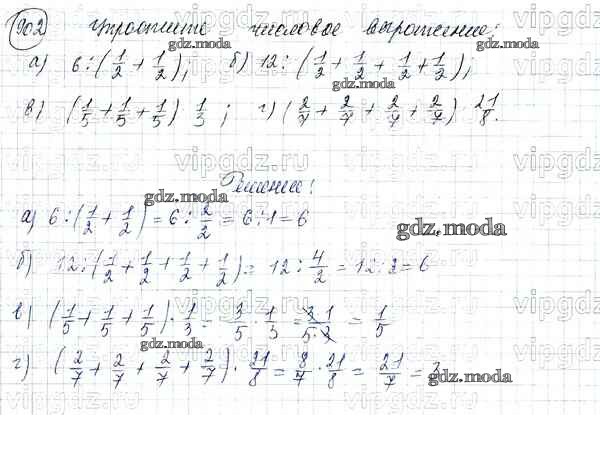 902 Упростите числовое выражение:
а) 6:(1/2 + 1/2); б) 12:(1/2 + 1/2 + 1/2 + 1/2);
в) (1/5 + 1/5 + 1/5) · 1/3; г) (2/7 + 2/7 + 2/7 + 2/7) · 21/8.
Решение:
а) 6:(1/2 + 1/2) = 6 : 2/2 = 6:1 = 6
б) 12:(1/2 + 1/2 + 1/2 + 1/2) = 12 : 4/2 = 12:2 = 6
в) (1/5 + 1/5 + 1/5) · 1/3 = 3/5 · 1/3 = 3·1/5·3 = 1/5
г) (2/7 + 2/7 + 2/7 + 2/7) · 21/8 = 8/7 · 21/8 = 21/7 = 3
gdz.moda
vipgdz.ru